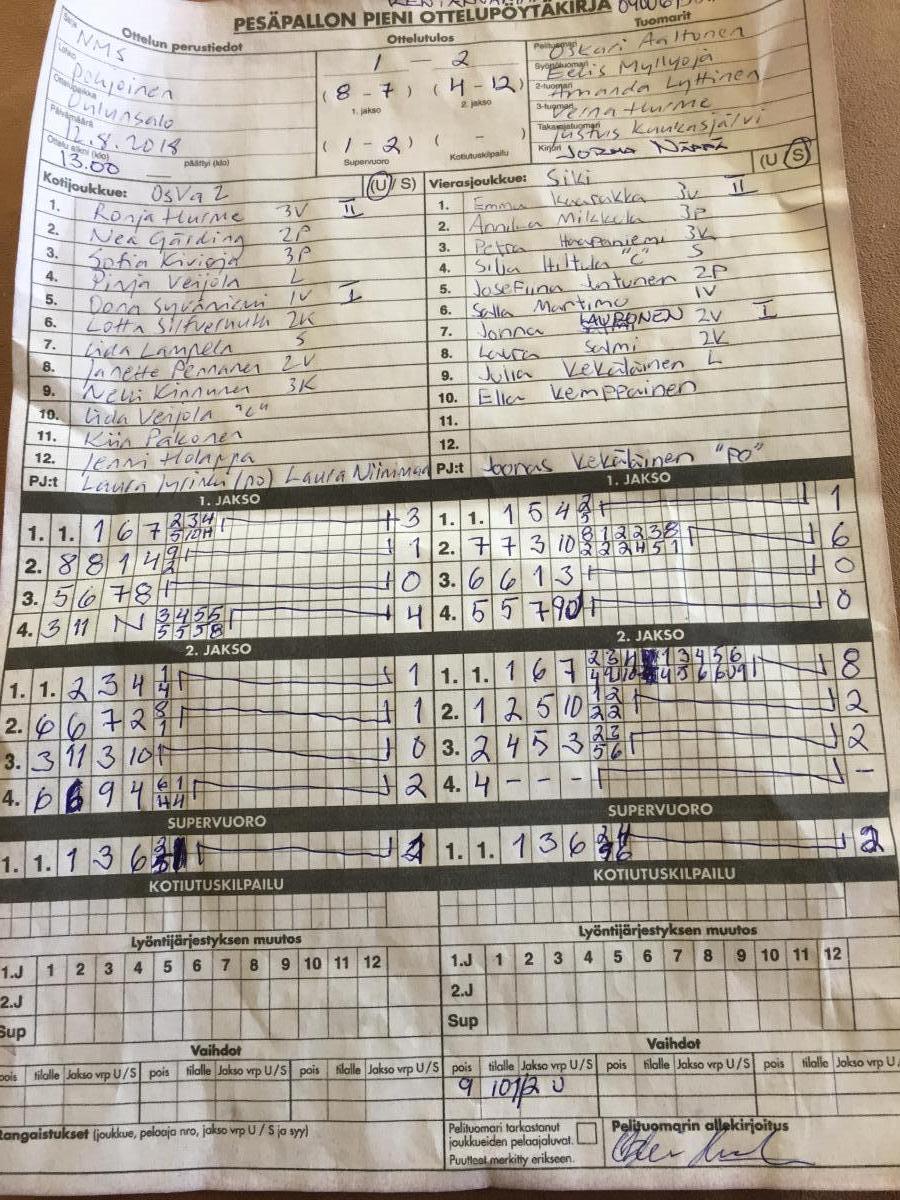 PESÄPALLON PIENI OTTELUPÖYTÄKIRJA
Ottelun perustiedot
Ottelutulos
Tuomarit
Sarja NMS
1 - 2
Pelituomari Oskari Aaltonen
Lohko Pohjoinen
(8 - 7) (4 - 12)
1. jakso 2. jakso
Syöttötuomari Eelis Myllyoja
2-tuomari Amanda Lyttinen
Ottelupaikka Oulunsalo
3-tuomari Verna Hurme
Päivämäärä 12.8.2018
(1 - 2) ( - )
Supervuoro Kotiutuskilpailu
Takarajatuomari Justus Kuukasjärvi
Ottelu alkoi (klo) 13.00 päättyi (klo)
Kirjuri JORMA NÄPPÄ
Kotijoukkue: OsVa 2 (U / S)
Vierasjoukkue: Siki (U / S)
1. Ronja Hurme 3V II
2. Nea Gärding 2P
3. Sofia Kivioja 3P
4. Pinja Veijola L
5. Oona 1V I
6. Lotta 2K
7. Iida Lampela S
8. Janette Pennanen 2V
9. Nelli Kinnunen 3K
10. Iida Veijola "C"
11. Kiia Pakonen
12. Jenni Holappa
PJ:t Laura (PO) Laura
1. Emma 3V II
2. Annika Mikkola 3P
3. Petra Haapaniemi 3K
4. Silja Hiltula "C" S
5. Josefiina Intunen 2P
6. Salla Martimo 1V
7. Jonna LAURONEN 2V I
8. Laura Salmi 2K
9. Julia Kekäläinen L
10. Ella Kemppainen
11.
12.
PJ:t Joonas Kekäläinen "PO"
1. JAKSO
1. 1. 1 6 7 2 3 4 5 10 11 3
2. 8 8 1 4 9 2 1
3. 5 6 7 8 0
4. 3 11 N 3 4 5 5 5 5 5 8 4
1. JAKSO
1. 1. 1 5 4 2 5 1
2. 7 7 3 10 8 1 2 2 3 8 2 2 2 4 5 1 6
3. 6 6 1 3 0
4. 5 5 7 9 0
2. JAKSO
1. 1. 2 3 4 1 4 1
2. 6 6 7 2 8 1 1
3. 3 11 3 10 0
4. 6 6 9 4 6 1 4 4 2
2. JAKSO
1. 1. 1 6 7 2 3 4 1 3 4 5 6 8
2. 1 2 5 10 1 2 2 2 2
3. 2 4 5 3 2 3 5 6 2
4. 4 - - - -
SUPERVUORO
1. 1. 1 3 6
SUPERVUORO
1. 1. 1 3 6 2
KOTIUTUSKILPAILU
KOTIUTUSKILPAILU
Lyöntijärjestyksen muutos
1.J 1 2 3 4 5 6 7 8 9 10 11 12
2.J
Sup
Lyöntijärjestyksen muutos
1.J 1 2 3 4 5 6 7 8 9 10 11 12
2.J
Sup
Vaihdot
pois tilalle Jakso vrp U/S pois tilalle Jakso vrp U/S pois tilalle Jakso vrp U/S
Vaihdot
pois tilalle Jakso vrp U/S pois tilalle Jakso vrp U/S pois tilalle Jakso vrp U/
9 10 1/2 U
Rangaistukset (joukkue, pelaaja nro, jakso vrp U / S ja syy)
Pelituomari tarkastanut
joukkueiden pelaajaluvat.
Puutteet merkitty erikseen.
Pelituomarin allekirjoitus